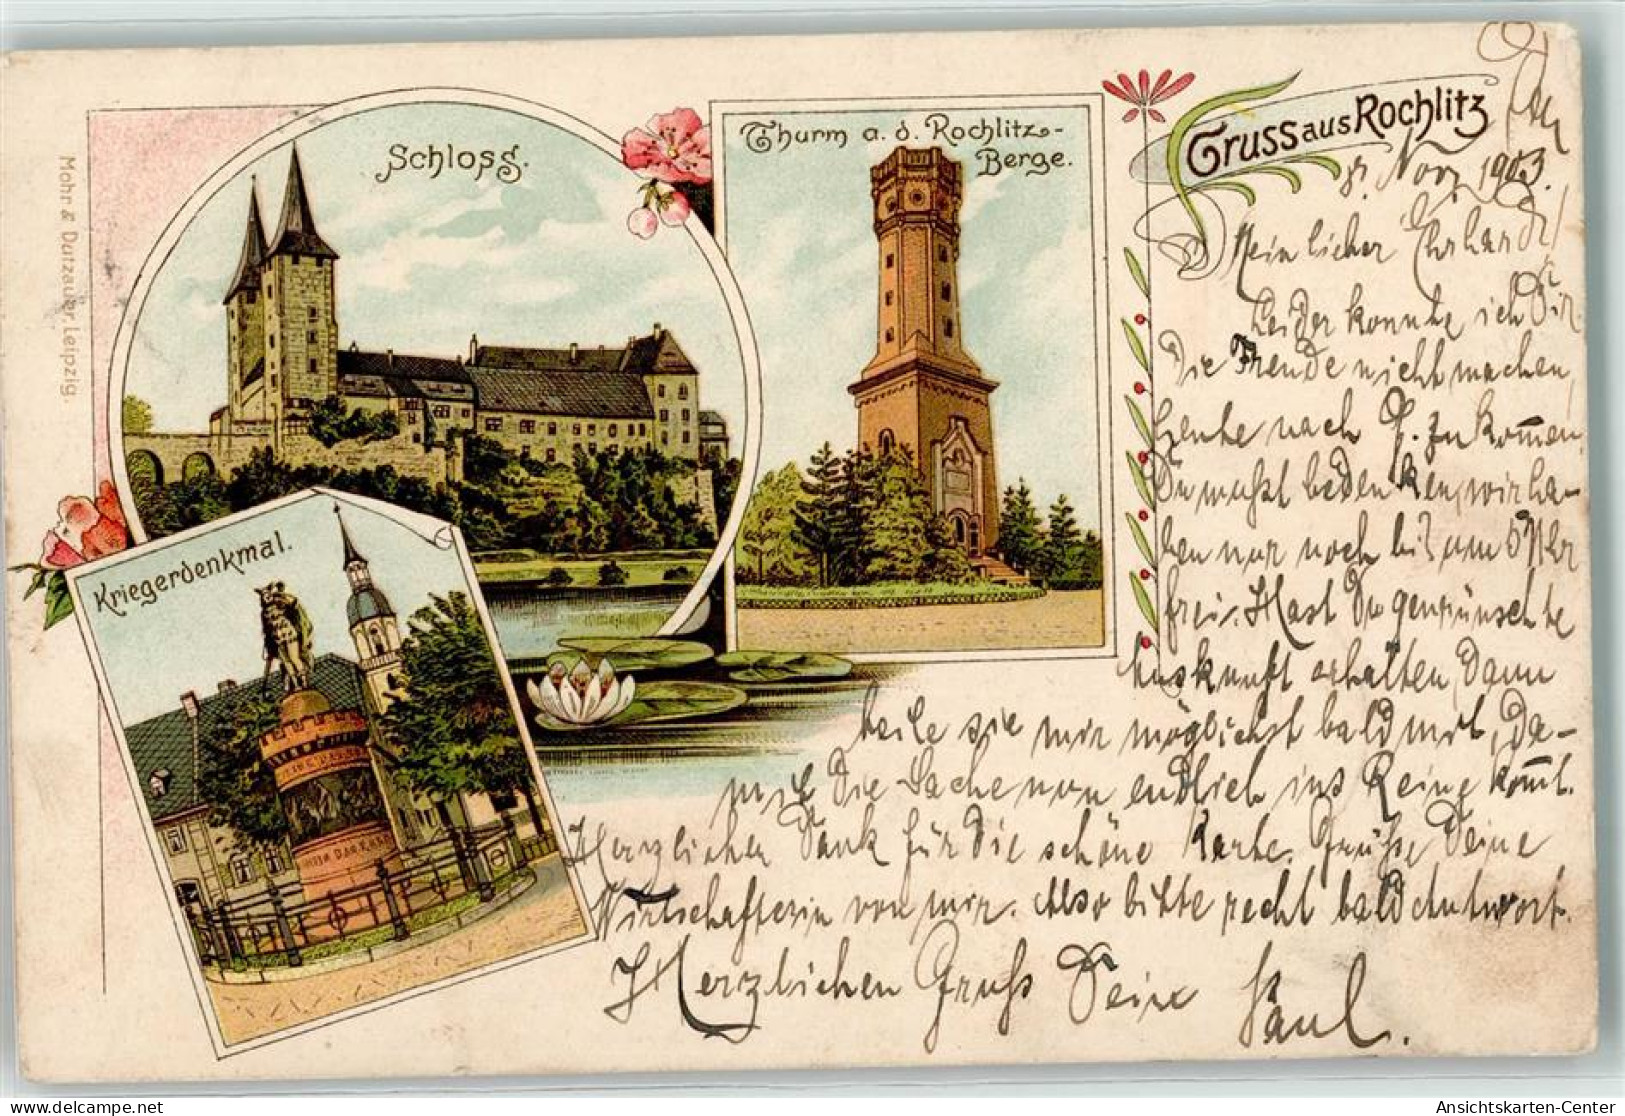 Mohr & Dutzauer, Leipzig.
Schloss.
Thurm a. d. Rochlitz-
Berge.
Gruss aus Rochlitz
Kriegerdenkmal.
8. Nov. 1903.
Mein lieber Ehrhard!
Leider konnte ich Dir
die Freude nicht machen,
heute nach G. zu kommen.
Du mußt bedenken, wir ha-
ben nur noch bis um 5 Uhr
frei. Hast Du gewünschte
Auskunft erhalten, dann
teile sie mir möglichst bald mit, da-
mit die Sache nun endlich ins Reine kommt.
Herzlichen Dank für die schöne Karte. Grüße Deine
Wirtschafterin von mir. Also bitte recht bald Antwort.
Herzlichen Gruß Dein Paul.
Ansichtskarten-Center